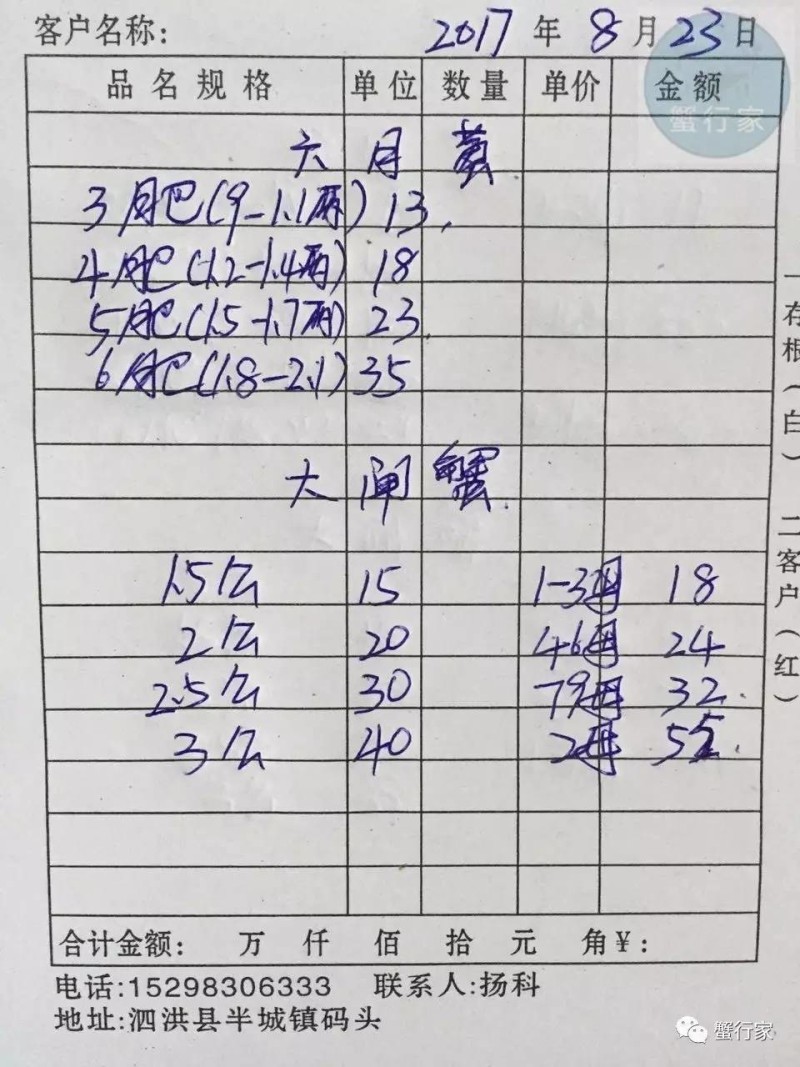 客户名称: 2017 年 8 月 23 日
品名规格 单位 数量 单价 金额
蟹行家
六 月 黄
3月肥(9-1.1两) 13.
4月肥(1.2-1.4两) 18
5月肥(1.5-1.7两) 23.
6月肥(1.8-2.1) 35
大 闸 蟹
1.5公 15 1-3母 18
2公 20 4-6母 24
2.5公 30 79母 32.
3公 40 2母 55.
合计金额: 万 仟 佰 拾 元 角 ¥:
电话:15298306333 联系人:扬科
地址:泗洪县半城镇码头
一存根(白)
二客户(红)
蟹行家